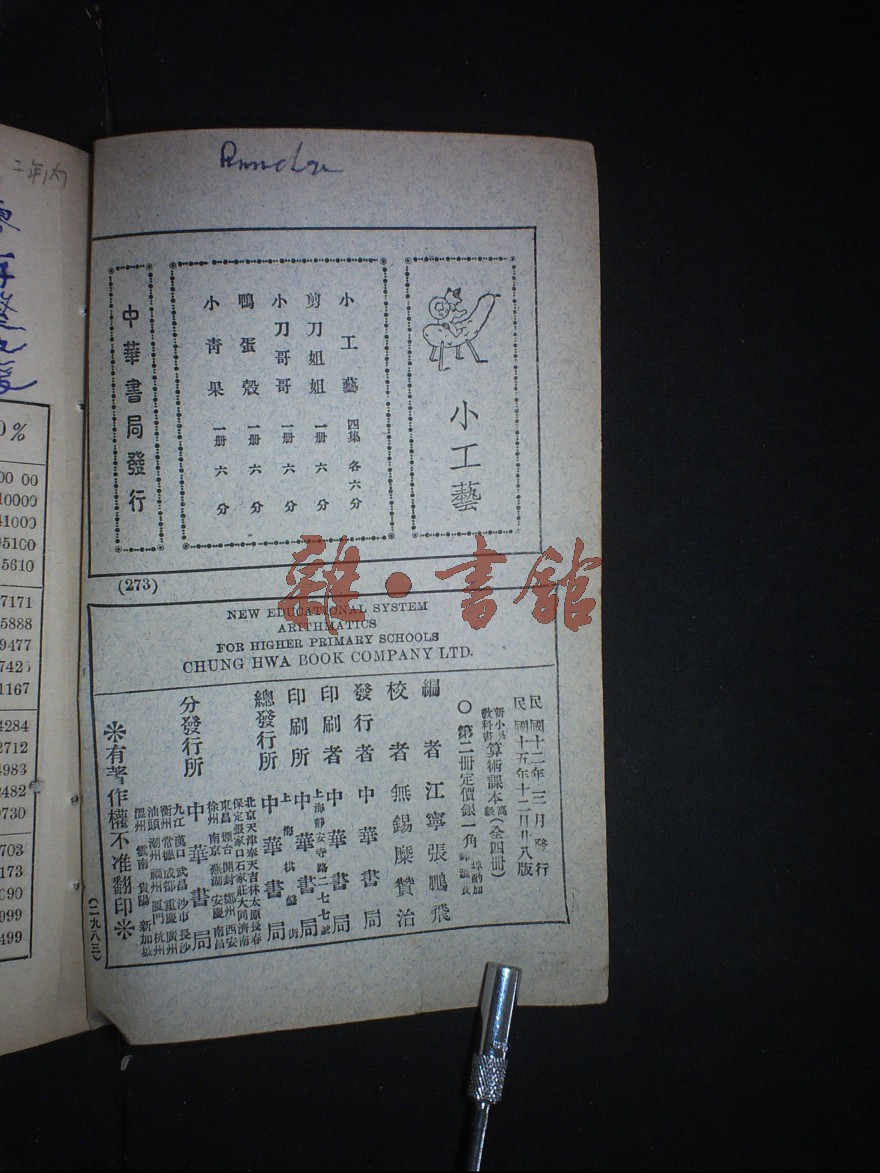 二年内
0%
00 00
10000
41000
05100
5610
7171
5888
9477
7425
1167
4284
2712
4983
2482
9730
703
173
090
999
499
小工藝
小工藝 四集 各六分
剪刀姐姐 一册 六分
小刀哥哥 一册 六分
鴨蛋殼 一册 六分
小青果 一册 六分
中華書局發行
(273)
雜·書館
NEW EDUCATIONAL SYSTEM
ARITHMATICS
FOR HIGHER PRIMARY SCHOOLS
CHUNG HWA BOOK COMPANY LTD.
民國十二年三月發行
民國十五年十二月廿八版
新小學教科書 算術課本 高級(全四冊)
○第二冊定價銀一角
編者 江寧張鵬飛
校者 無錫糜贊治
發行者 中華書局
印刷者 中華書局
上海靜安寺路二七七號
印刷所 中華書局
上海棋盤街
總發行所 中華書局
北京天津奉天吉林太原長春
保定張家口石家莊大同濟南
東昌烟台開封鄭州西安
徐州南京蕪湖安慶南昌
分發行所 中華書局
九江漢口武昌沙市長沙
衡州常德成都重慶廣州
汕頭潮州福州厦門杭州
溫州雲南貴陽新加坡
※有著作權不准翻印※
(二九八三)